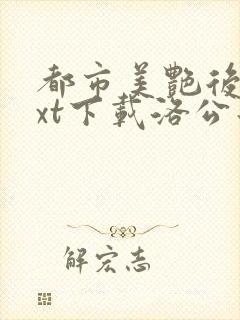 都市美艷後
xt下載洛公
解宏志